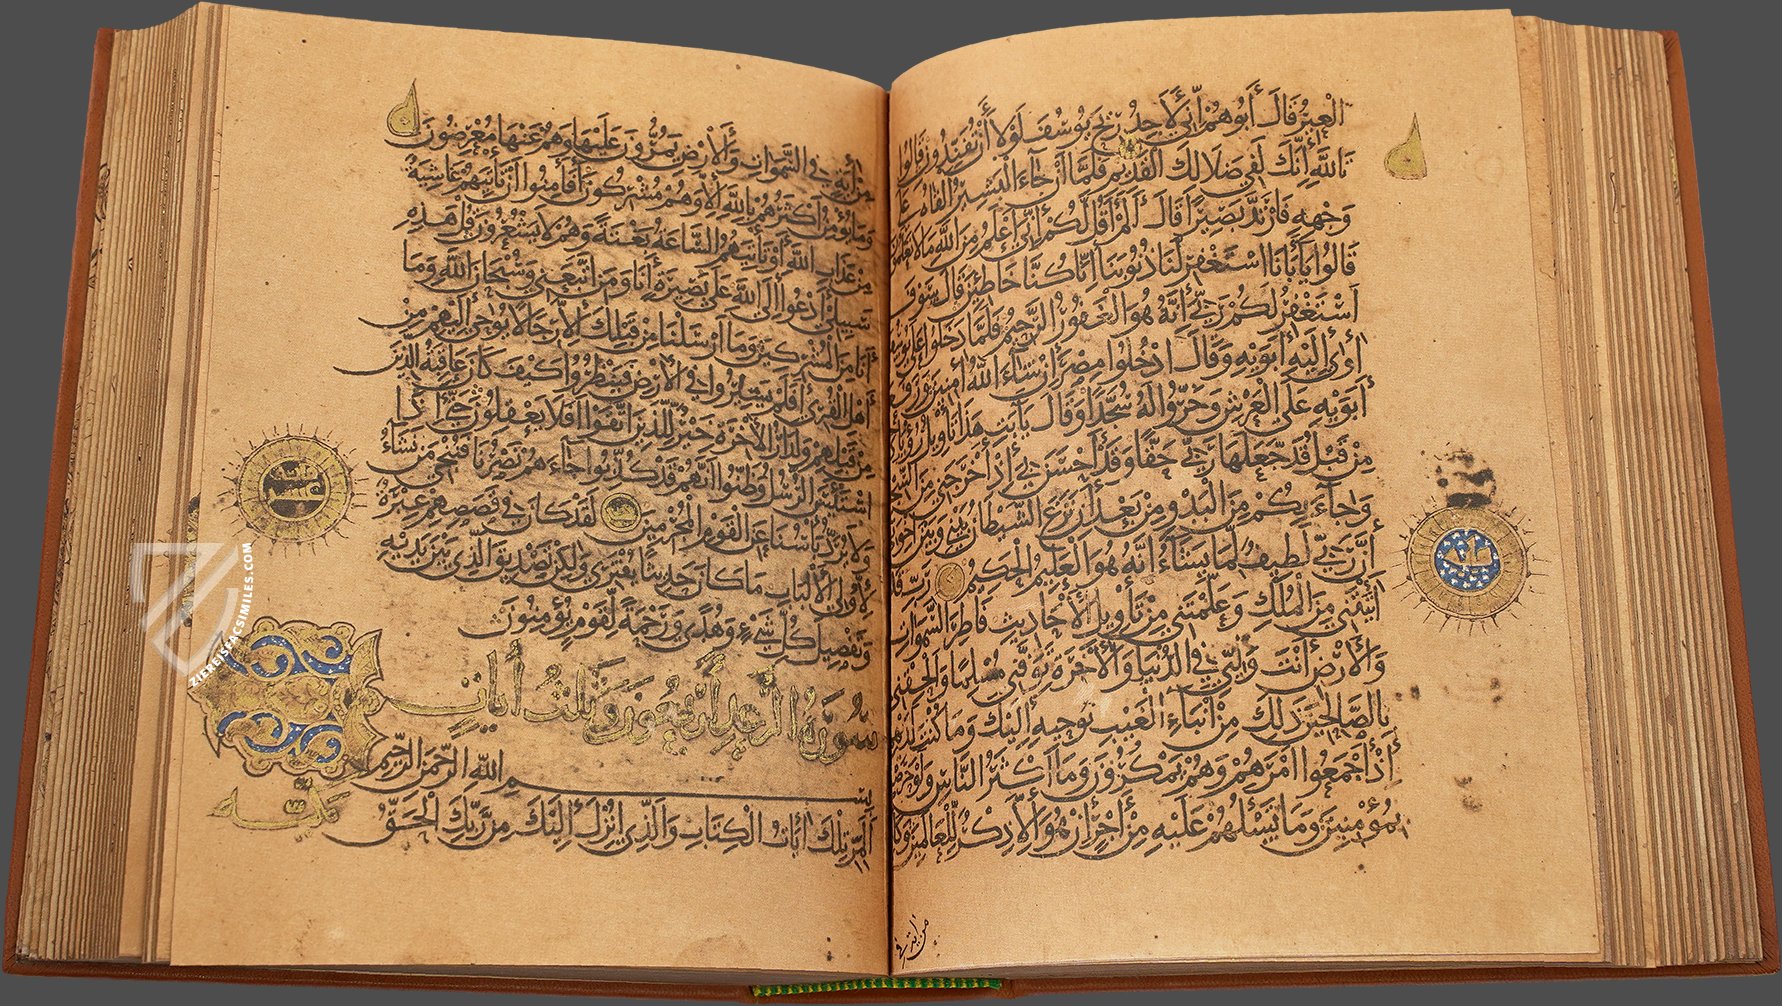 الْعِيرُ قَالَ أَبُوهُمْ إِنِّي لَأَجِدُ رِيحَ يُوسُفَ لَوْلَا أَنْ تُفَنِّدُونِ قَالُوا
تَاللَّهِ إِنَّكَ لَفِي ضَلَالِكَ الْقَدِيمِ فَلَمَّا أَنْ جَاءَ الْبَشِيرُ أَلْقَاهُ عَلَى
وَجْهِهِ فَارْتَدَّ بَصِيرًا قَالَ أَلَمْ أَقُلْ لَكُمْ إِنِّي أَعْلَمُ مِنَ اللَّهِ مَا لَا تَعْلَمُونَ
قَالُوا يَا أَبَانَا اسْتَغْفِرْ لَنَا ذُنُوبَنَا إِنَّا كُنَّا خَاطِئِينَ قَالَ سَوْفَ
أَسْتَغْفِرُ لَكُمْ رَبِّي إِنَّهُ هُوَ الْغَفُورُ الرَّحِيمُ فَلَمَّا دَخَلُوا عَلَى يُوسُفَ
أَوَى إِلَيْهِ أَبَوَيْهِ وَقَالَ ادْخُلُوا مِصْرَ إِنْ شَاءَ اللَّهُ آمِنِينَ وَرَفَعَ
أَبَوَيْهِ عَلَى الْعَرْشِ وَخَرُّوا لَهُ سُجَّدًا وَقَالَ يَا أَبَتِ هَذَا تَأْوِيلُ رُؤْيَايَ
مِنْ قَبْلُ قَدْ جَعَلَهَا رَبِّي حَقًّا وَقَدْ أَحْسَنَ بِي إِذْ أَخْرَجَنِي مِنَ السِّجْنِ
وَجَاءَ بِكُمْ مِنَ الْبَدْوِ مِنْ بَعْدِ أَنْ نَزَغَ الشَّيْطَانُ بَيْنِي وَبَيْنَ إِخْوَتِي
إِنَّ رَبِّي لَطِيفٌ لِمَا يَشَاءُ إِنَّهُ هُوَ الْعَلِيمُ الْحَكِيمُ رَبِّ قَدْ
آتَيْتَنِي مِنَ الْمُلْكِ وَعَلَّمْتَنِي مِنْ تَأْوِيلِ الْأَحَادِيثِ فَاطِرَ السَّمَوَاتِ
وَالْأَرْضِ أَنْتَ وَلِيِّي فِي الدُّنْيَا وَالْآخِرَةِ تَوَفَّنِي مُسْلِمًا وَأَلْحِقْنِي
بِالصَّالِحِينَ ذَلِكَ مِنْ أَنْبَاءِ الْغَيْبِ نُوحِيهِ إِلَيْكَ وَمَا كُنْتَ لَدَيْهِمْ
إِذْ أَجْمَعُوا أَمْرَهُمْ وَهُمْ يَمْكُرُونَ وَمَا أَكْثَرُ النَّاسِ وَلَوْ حَرَصْتَ
بِمُؤْمِنِينَ وَمَا تَسْأَلُهُمْ عَلَيْهِ مِنْ أَجْرٍ إِنْ هُوَ إِلَّا ذِكْرٌ لِلْعَالَمِينَ وَكَأَيِّنْ
من اية في
مِنْ آيَةٍ فِي السَّمَوَاتِ وَالْأَرْضِ يَمُرُّونَ عَلَيْهَا وَهُمْ عَنْهَا مُعْرِضُونَ
وَمَا يُؤْمِنُ أَكْثَرُهُمْ بِاللَّهِ إِلَّا وَهُمْ مُشْرِكُونَ أَفَأَمِنُوا أَنْ تَأْتِيَهُمْ غَاشِيَةٌ
مِنْ عَذَابِ اللَّهِ أَوْ تَأْتِيَهُمُ السَّاعَةُ بَغْتَةً وَهُمْ لَا يَشْعُرُونَ قُلْ هَذِهِ
سَبِيلِي أَدْعُو إِلَى اللَّهِ عَلَى بَصِيرَةٍ أَنَا وَمَنِ اتَّبَعَنِي وَسُبْحَانَ اللَّهِ وَمَا
أَنَا مِنَ الْمُشْرِكِينَ وَمَا أَرْسَلْنَا مِنْ قَبْلِكَ إِلَّا رِجَالًا يُوحَى إِلَيْهِمْ مِنْ
أَهْلِ الْقُرَى أَفَلَمْ يَسِيرُوا فِي الْأَرْضِ فَيَنْظُرُوا كَيْفَ كَانَ عَاقِبَةُ الَّذِينَ
مِنْ قَبْلِهِمْ وَلَدَارُ الْآخِرَةِ خَيْرٌ لِلَّذِينَ اتَّقَوْا أَفَلَا يَعْقِلُونَ حَتَّى إِذَا
اسْتَيْئَسَ الرُّسُلُ وَظَنُّوا أَنَّهُمْ قَدْ كُذِّبُوا جَاءَهُمْ نَصْرُنَا فَنُنْجِي مَنْ نَشَاءُ
وَلَا يُرَدُّ بَأْسُنَا عَنِ الْقَوْمِ الْمُجْرِمِينَ لَقَدْ كَانَ فِي قَصَصِهِمْ عِبْرَةٌ
لِأُولِي الْأَلْبَابِ مَا كَانَ حَدِيثًا يُفْتَرَى وَلَكِنْ تَصْدِيقَ الَّذِي بَيْنَ يَدَيْهِ
وَتَفْصِيلَ كُلِّ شَيْءٍ وَهُدًى وَرَحْمَةً لِقَوْمٍ يُؤْمِنُونَ
سُورَةُ الرَّعْدِ أَرْبَعُونَ وَثَلَثُ آيَاتٍ
بِسْمِ اللَّهِ الرَّحْمَنِ الرَّحِيمِ
مكية
الٓمٓر تِلْكَ آيَاتُ الْكِتَابِ وَالَّذِي أُنْزِلَ إِلَيْكَ مِنْ رَبِّكَ الْحَقُّ
ZIEREISFACSIMILES.COM